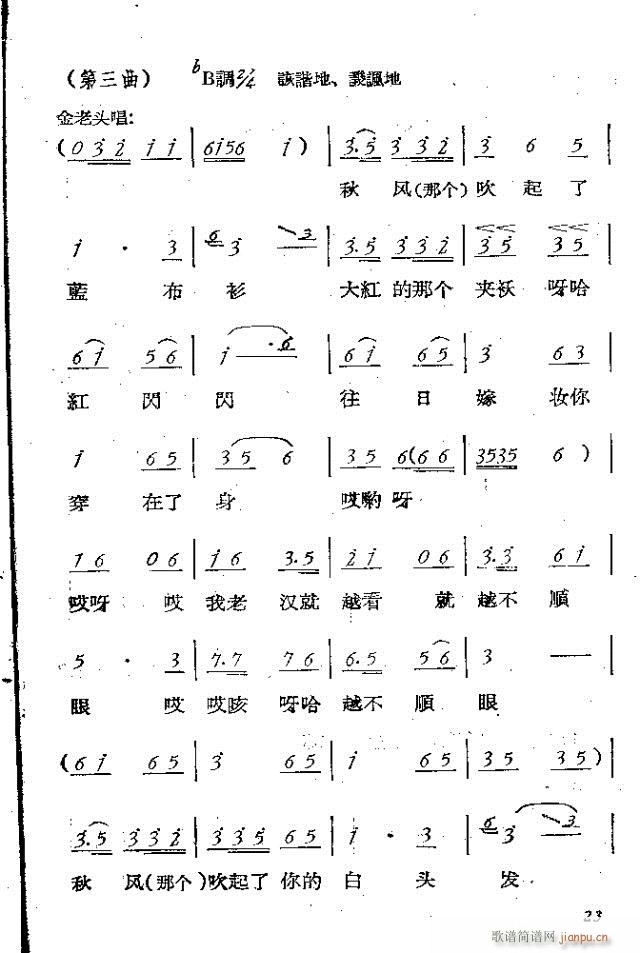 （第三曲） ᵇB調2/4 詼諧地、譏諷地
金老头唱：
(0 3 2 1 1 | 6156 1) | 3.5 3 3 2 | 3 6 5 |
秋 风(那个)吹 起 了
1 . 3 | 6 3 3 | 3.5 3 3 2 | 3 5 3 5 |
藍 布 衫 大紅的那个 夹袄 呀哈
6 1 5 6 | 1 . 6 | 6 1 6 5 | 3 6 3 |
紅 閃 閃 往 日 嫁 妆你
1 6 5 | 3 5 6 | 3 5 6(6 6 | 3535 6) |
穿 在了 身 哎喲呀
1 6 0 6 | 1 6 3.5 | 2 1 0 6 | 3.3 6 1 |
哎呀 哎 我老 汉就 越看 就 越不 順
5 . 3 | 7.7 7 6 | 6.5 5 6 | 3 — |
眼 哎 哎咳 呀哈 越不 順 眼
(6 1 6 5 | 3 6 5 | 1 6 5 | 3 5 3 5) |
3.5 3 3 2 | 3 3 5 6 5 | 1 . 3 | 6 3 3 |
秋 风(那个)吹起了 你的 白 头 发
23
歌谱简谱网 jianpu.cn